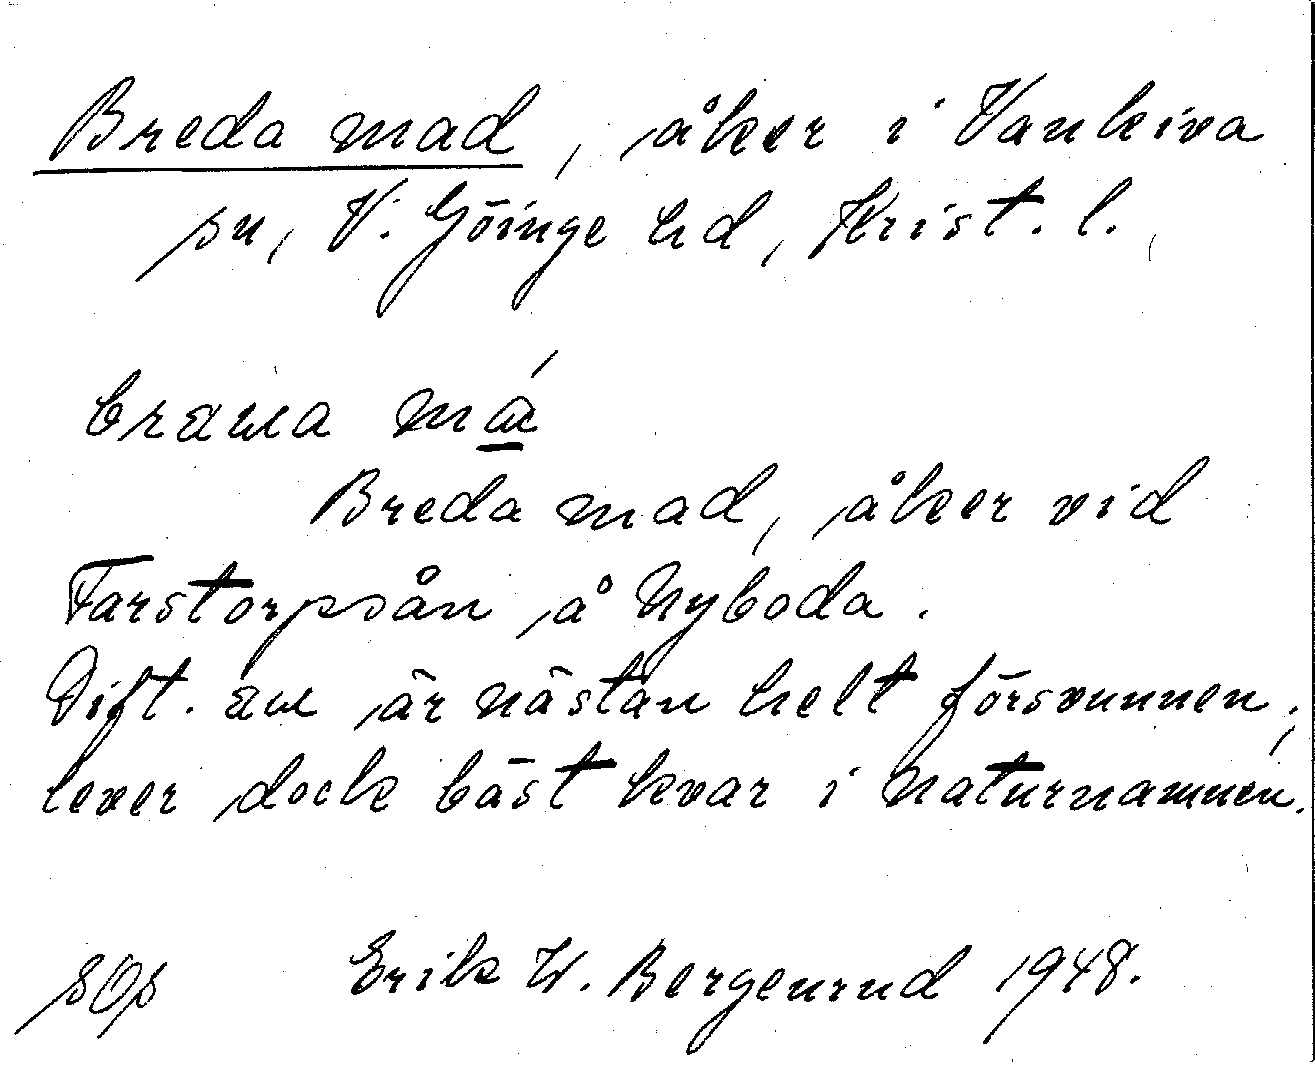 Breda mad, åker i Vankiva
sn, V. Göinge hd, Krist. l.
Breda mad, åker vid
Farstorpsån å Nyboda.
Dift. är nästan helt försvunnen;
lever dock bäst kvar i naturnamnen.
Erik W. Bergenrud 1948.